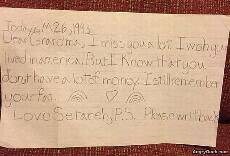 Today is M 26, 199
Dear Grandma, I miss you a lot. I wish you
lived in america. But I know that you
dont have a lots of money. I still remember
your fan.
Love Setareh, P.S. Please write back
AngryDuck.com